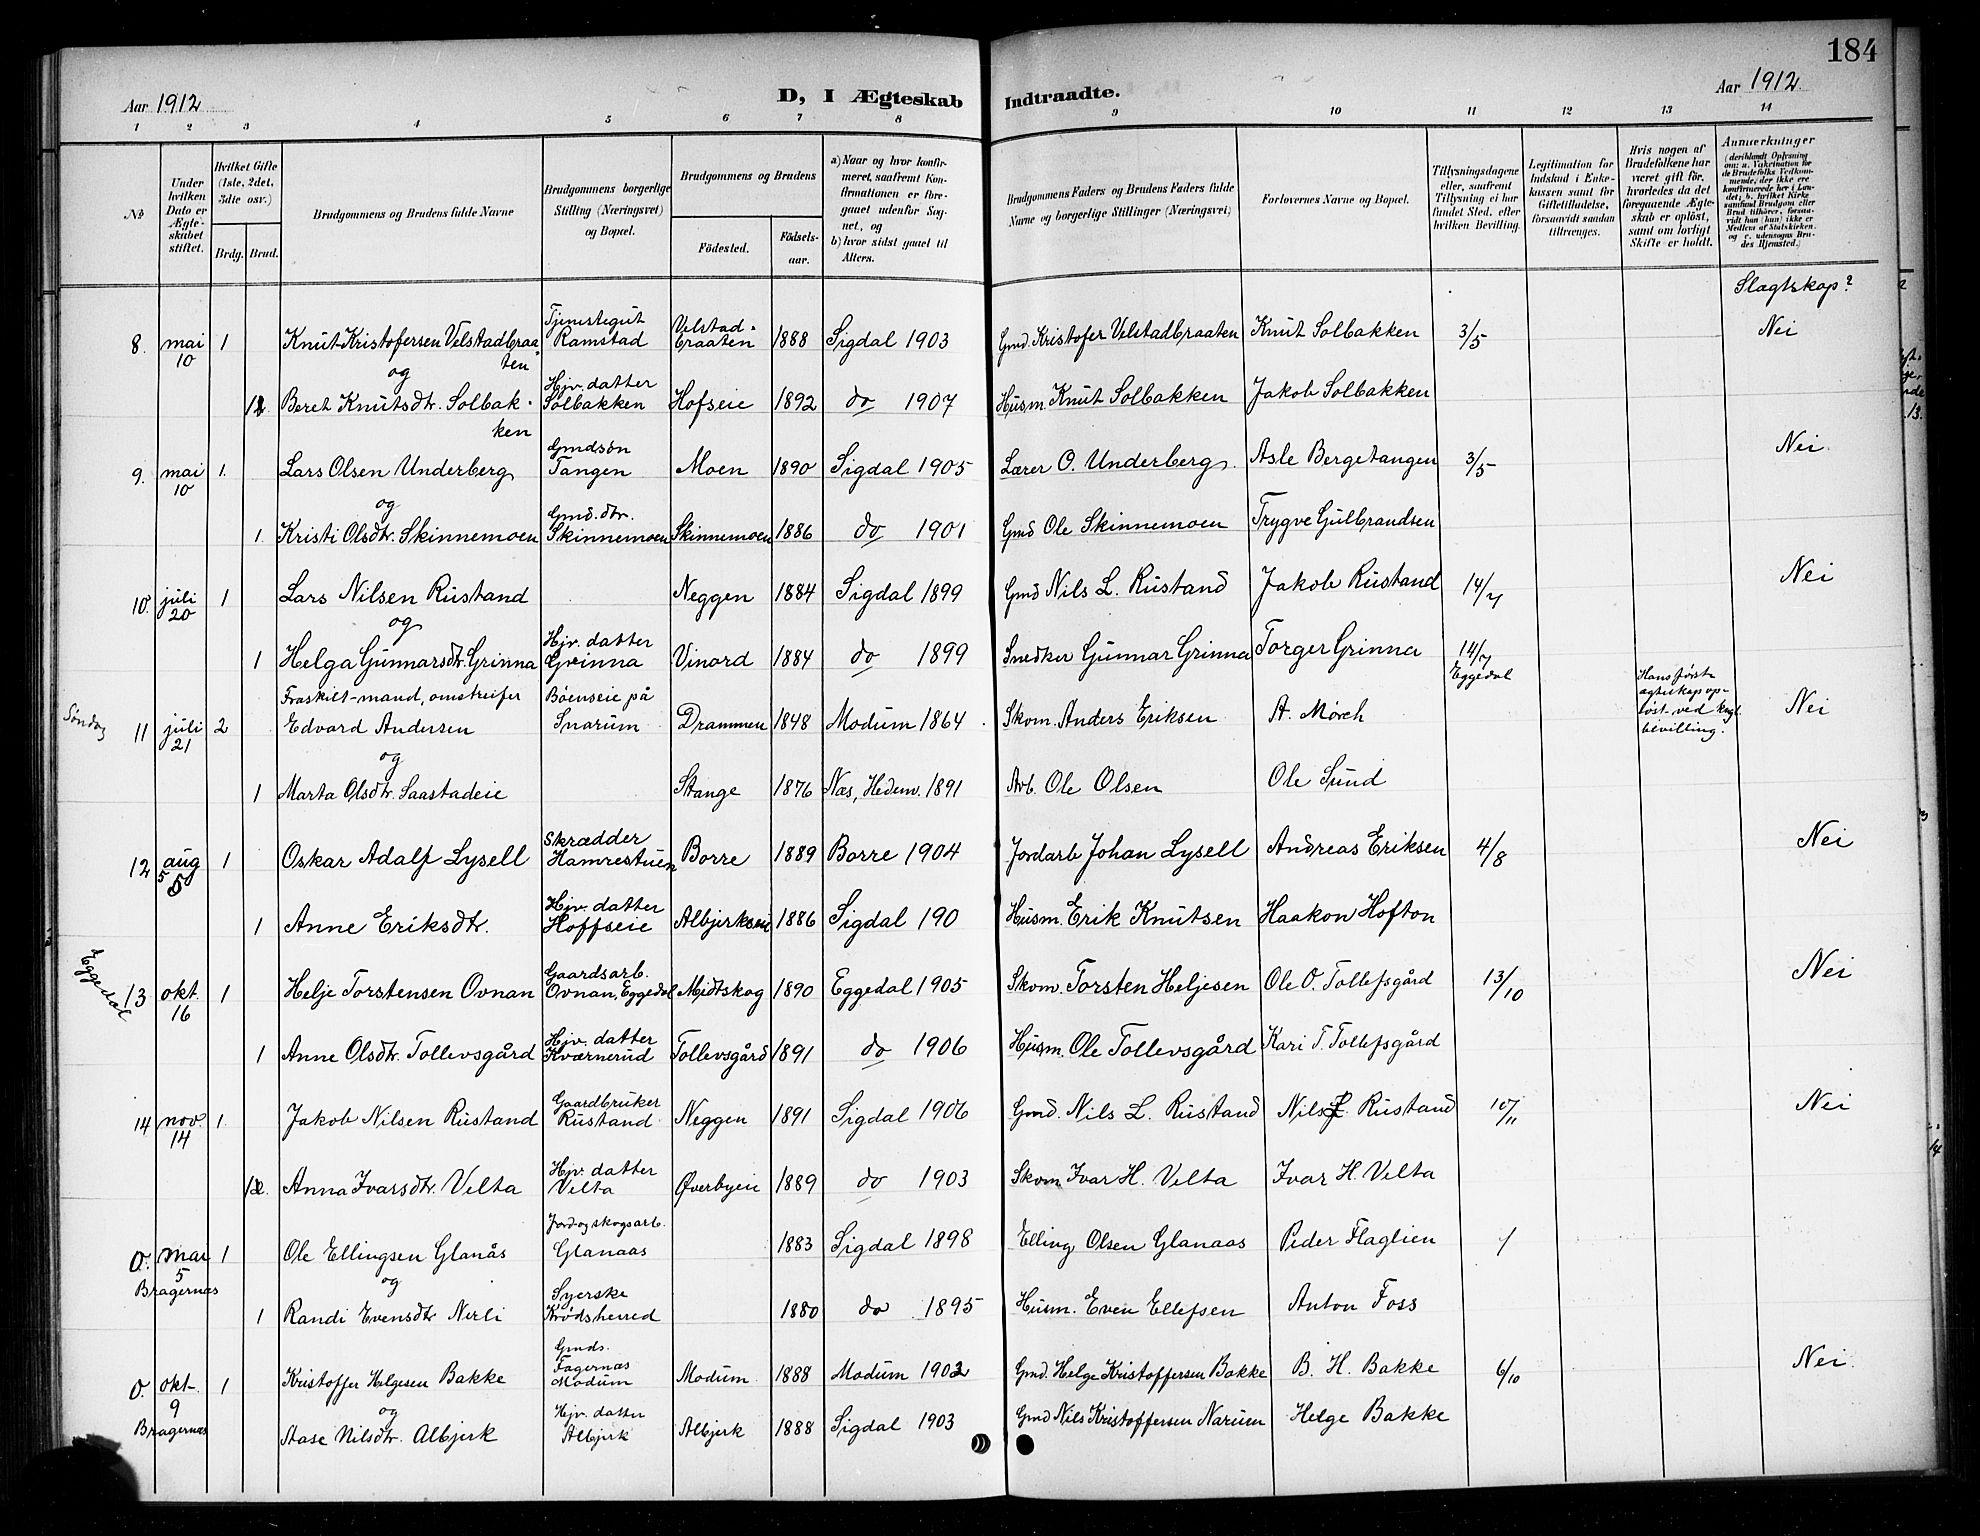 184
Aar 1912
D, I Ægteskab Indtraadte.
Aar 1912
1 2 3 4 5 6 7 8 9 10 11 12 13 14
No
Under hvilken Dato er Ægteskabet stiftet.
Hvilket Gifte (1ste, 2det, 3die osv.)
Brdg. Brud.
Brudgommens og Brudens fulde Navne
Brudgommens borgerlige Stilling (Næringsvei) og Bopæl.
Brudgommens og Brudens
Födested.
Födsels-aar.
a) Naar og hvor konfirmeret, saafremt Konfirmationen er foregaaet udenfor Sognet, og b) hvor sidst gaaet til Alters.
Brudgommens Faders og Brudens Faders fulde Navne og borgerlige Stillinger (Næringsvei)
Forlovernes Navne og Bopæl.
Tillysningsdagene eller, saafremt Tillysning ei har fundet Sted, efter hvilken Bevilling.
Legitimation for Indskud i Enkekassen samt for Giftetilladelse, forsaavidt saadan tiltrænges.
Hvis nogen af Brudefolkene har været gift før, hvorledes da det foregaaende Ægteskab er oplöst, samt om lovligt Skifte er holdt.
Anmærkninger (deriblandt Oplysning om: a. Vakcination for de Brudefolks Vedkommende, der ikke ere konfirmerede her i Landet; b. hvilket Kirkesamfund Brudgom eller Brud tilhörer, forsaavidt han (hun) ikke er Medlem af Statskirken, og c. udensogns Brudes Hjemsted.)
Slægtskap?
8. mai 10 1 Knut Kristofersen Velstadbraaten Tjenestegut Ramstad Velstadbraaten 1888 Sigdal 1903 Gmd. Kristofer Velstadbraaten Knut Solbakken 3/5 Nei
og
1 Beret Knutsdtr. Solbakken Hjv. datter Solbakken Hofseie 1892 do 1907 Husm. Knut Solbakken Jakob Solbakken
9. mai 10 1. Lars Olsen Underberg Gmdsøn Tangen Moen 1890 Sigdal 1905 Lærer O. Underberg. Asle Bergetangen 3/5 Nei.
og
1. Kristi Olsdtr. Skinnemoen Gmd. dtr. Skinnemoen Skinnemoen 1886 do 1901 Gmd Ole Skinnemoen Trygve Gulbrandsen
10. juli 20 1 Lars Nilsen Rustand Neggen 1884 Sigdal 1899 Gmd Nils L. Rustand Jakob Rustand 14/7 Nei
og
1 Helga Gunnarsdtr. Grinna Hjv. datter Greinna Vinord 1884 do 1899 Snedker Gunnar Grinna Torger Grinna 14/7 Eggedal
Søndag 11 juli 21 2 Fraskilt-mand, omstreifer Edvard Andersen Böenseie på Snarum Drammen 1848 Modum 1864. Skom. Anders Eriksen A. Mörch Hans første ægteskap opløst ved kngl. bevilling. Nei
og
1 Marta Olsdtr. Saastadeie Stange 1876 Næs, Hedem. 1891 Arb. Ole Olsen Ole Sund
12 aug 5 1 Oskar Adalf Lysell Skrædder Hamrestuen Borre 1889 Borre 1904 Jordarb Johan Lysell Andreas Eriksen 4/8 Nei
1 Anne Eriksdtr. Hjv. datter Hoffseie Albjerkseie 1886 Sigdal 190 Husm. Erik Knutsen Haakon Hofton
Eggedal 13 okt. 16 1 Helje Torstensen Ovnan Gaardsarb. Ovnan, Eggedal Midtskog 1890 Eggedal 1905 Skom. Torsten Heljesen Ole O. Tollefsgård 13/10 Nei
1 Anne Olsdtr. Tollevsgård Hjv. datter Kværnerud Tollevsgård 1891 do 1906 Husm. Ole Tollevsgård Kari T. Tollefsgård
14 nov 14 1. Jakob Nilsen Rustand Gaardbruker Rustand Neggen 1891 Sigdal 1906 Gmd. Nils L. Rustand Nils L. Rustand 10/11 Nei
1. Anna Ivarsdtr. Velta Hjv. datter Velta Øverbyeie 1889 do 1903 Skom Ivar H. Velta Ivar H. Velta
O. mai 5 Bragernæs 1 Ole Ellingsen Glanås Jord og skogsarb. Glanaas 1883 Sigdal 1898 Elling Olsen Glanaas Peder Flaglien /
og
1 Randi Evensdtr Nerli Syerske Krødsherred 1880 do 1895 Husm. Even Ellefsen Anton Foss
O. okt. 9 Bragernæs 1 Kristoffer Helgesen Bakke Gmds. Fagernæs Modum Modum 1888 Modum 1902 Gmd. Helge Kristoffersen Bakke B. H. Bakke 6/10 Nei.
og
Aase Nilsdtr. Albjerk Hjv. datter Albjerk Albjerk 1888 Sigdal 1903 Gmd Nils Kristoffersen Naruen Helge Bakke